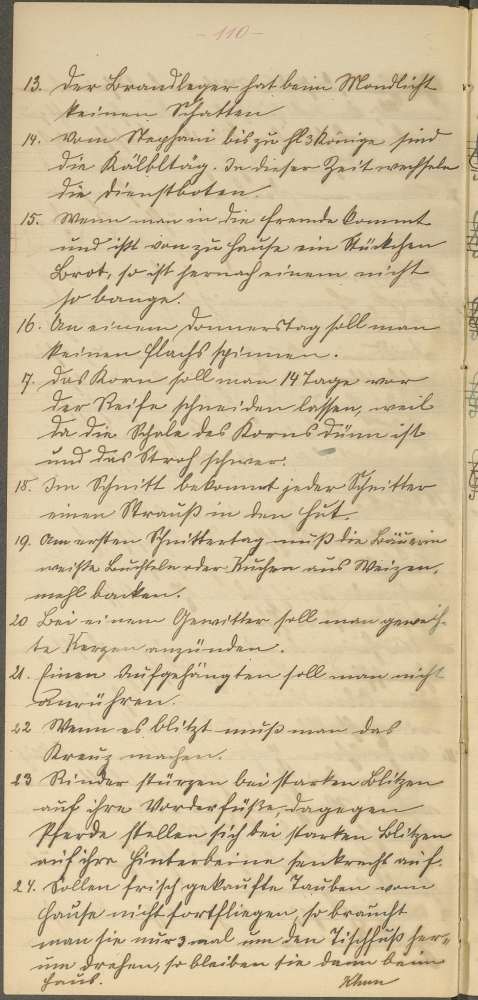 -110-
13. Der Brandleger hat beim Mondlicht
keinen Schatten
14. Vom Stephani bis zu hl 3 Könige sind
die Kälbltäg. In dieser Zeit wechseln
die Dienstboten.
15. Wenn man in die Fremde kommt
und ißt von zu Hause ein Stückchen
Brot, so ist hernach einem nicht
so bange.
16. An einem Donnerstag soll man
keinen Flachs spinnen.
17. Das Korn soll man 14 Tage vor
der Reife schneiden lassen, weil
da die Schale des Korns dünn ist
und das Stroh schwer.
18. Im Schnitt bekommt jeder Schnitter
einen Strauß in den Hut.
19. Am ersten Schnittertag muß die Bäuerin
weiße Buchteln oder Kuchen aus Weizen-
mehl backen.
20 Bei einem Gewitter soll man geweih-
te Kerzen anzünden.
21. Einen Aufgehängten soll man nicht
anrühren.
22 Wenn es blitzt muß man das
Kreuz machen.
23 Rinder stürzen bei starken Blitzen
auf ihre Vorderfüße, dagegen
Pferde stellen sich bei starken Blitzen
auf ihre Hinterbeine senkrecht auf.
24. Sollen frisch gekaufte Tauben vom
Hause nicht fortfliegen, so braucht
man sie nur 3 mal um den Tischfuß her-
um drehen, so bleiben sie dann beim
Haus.